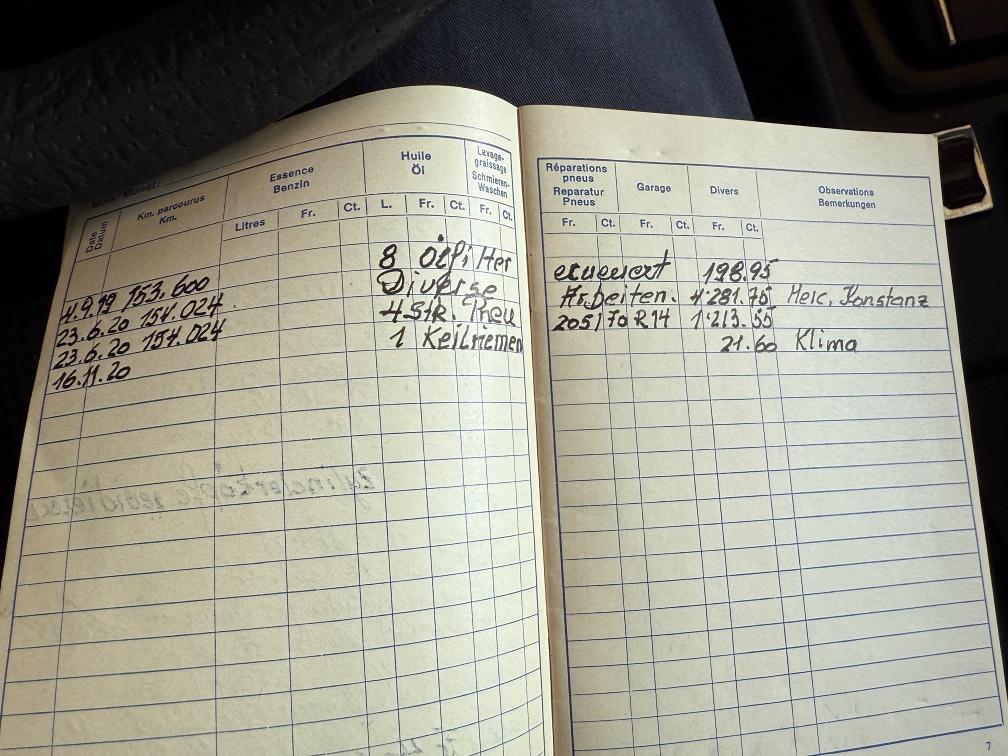 Mois/Monat:
Date
Datum
Km. parcourus
Km.
Essence
Benzin
Huile
Öl
Lavage-
graissage
Schmieren-
Waschen
Réparations
pneus
Reparatur
Pneus
Garage
Divers
Observations
Bemerkungen
Litres Fr. Ct. L. Fr. Ct. Fr. Ct. Fr. Ct. Fr. Ct. Fr. Ct.
4.9.19 153.600 8 Ölfilter erneuert 198.95
23.6.20 154.024 Diverse Arbeiten. 4'281.75 Merc, Konstanz
23.6.20 154.024 4 Stk. 205/70 R14 1'213.55
16.11.20 1 Keilriemen 21.60 Klima